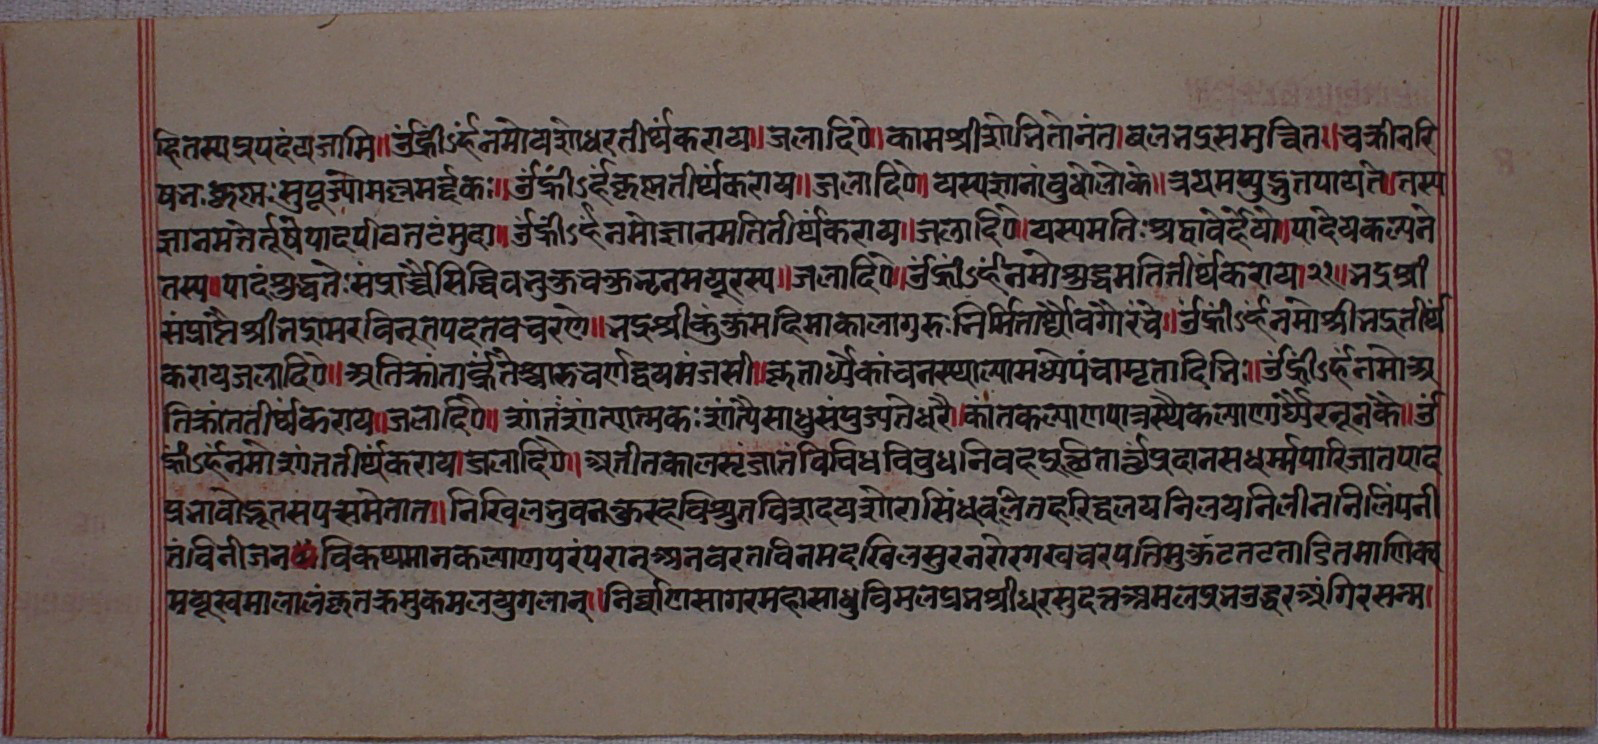 हितस्यप्रपदंयजामि॥ॐह्रींऽर्हंनमोयशोधरतीर्थंकराय॥जलादिपे॥कामश्रीशोभितोनंत।बलभद्रसमुच्चितः॥चक्रीनरि
षनःकृस्मःसुपूज्योमल्लमर्द्दकः॥ॐह्रींऽर्हंकृस्नतीर्थंकराय॥जलादिपे॥यस्यज्ञानांबुधोलोके॥त्रयमप्पुद्भुतपाद्यते।तस्प
ज्ञानमतेर्तूषेपादपीवतटंमुदा॥ॐह्रींऽर्हंनमोज्ञानमतितीर्थंकराय॥जलादिपे॥यस्पमतिःश्रद्वावेर्देयो॥पादेयकल्पने
तस्प॥पादंशुद्धतेःसंप्रार्च्चैसिद्धिवनुक्तवक्तनृनमयूरस्प॥जलादिपे॥ॐह्रींऽर्हंनमोशुद्धमतितीर्थंकराय।२१॥भद्रश्री
संप्राप्तैश्रीभद्रामरविनूतपदतवचरणे॥भद्रश्रीकुंकुमदिमाकालागुरुःनिर्मितार्घ्यैवगौरंचे॥ॐह्रींऽर्हंनमोश्रीभद्रतीर्थ
करायजलादिपे॥अतिक्रांतार्क्कतेश्चारुवर्णद्वयमंजसी॥कृतार्घ्येकांचनस्पाल्यामध्येपंचामृतादिभिः॥ॐह्रींऽर्हंनमोअ
तिक्रांततीर्थंकराय॥जलादिपे॥शांतंशांत्यात्मकःशांत्यैसाधुसंपुज्यतेधरै॥कांतकल्याणपात्रस्थैकल्याणार्घ्यैरनूनकै॥ॐ
ह्रींऽर्हंनमोशांततीर्थंकराय।जलादिपे॥अतीतकालसृजातंविविधविवुधनिवहपूजितार्च्चप्रदानसधर्म्मपारिजातपाद
प्रभावोद्भूतसंपत्समेतात॥निखिलभुवनकुरुहविश्रुतविशदयशोरासिंधवलितहरिद्वलयनिलयनिलीननिलिंपनी
तंविनीजनविकथ्यमानकल्याणपरंपरान्अनवरतविनमदखिलसुरनरोरगखचरपतिमुकुटतटताडितमाणिक्य
मयूखमालालंकृतक्रमुकमलयुगलान्॥निर्व्वाणसागरमहासाधुविमलप्रभश्रीधरसुदत्तअमलप्रभउद्धरअंगिरसन्म।